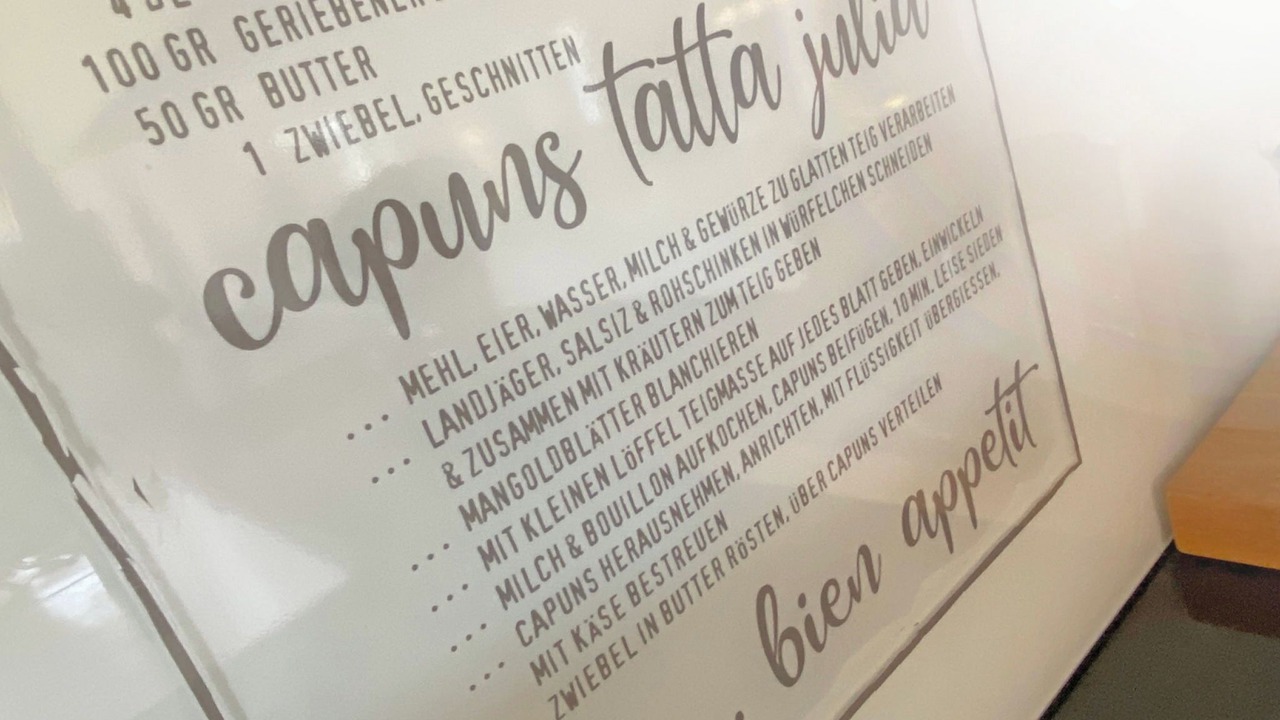 100 GR GERIEBENER
50 GR BUTTER
1 ZWIEBEL, GESCHNITTEN
capuns tatta julia
... MEHL, EIER, WASSER, MILCH & GEWÜRZE ZU GLATTEN TEIG VERARBEITEN
... LANDJÄGER, SALSIZ & ROHSCHINKEN IN WÜRFELCHEN SCHNEIDEN
& ZUSAMMEN MIT KRÄUTERN ZUM TEIG GEBEN
... MANGOLDBLÄTTER BLANCHIEREN
... MIT KLEINEN LÖFFEL TEIGMASSE AUF JEDES BLATT GEBEN, EINWICKELN
... MILCH & BOUILLON AUFKOCHEN, CAPUNS BEIFÜGEN, 10 MIN. LEISE SIEDEN
... CAPUNS HERAUSNEHMEN, ANRICHTEN, MIT FLÜSSIGKEIT ÜBERGIESSEN,
MIT KÄSE BESTREUEN
ZWIEBEL IN BUTTER RÖSTEN, ÜBER CAPUNS VERTEILEN
bien appetit